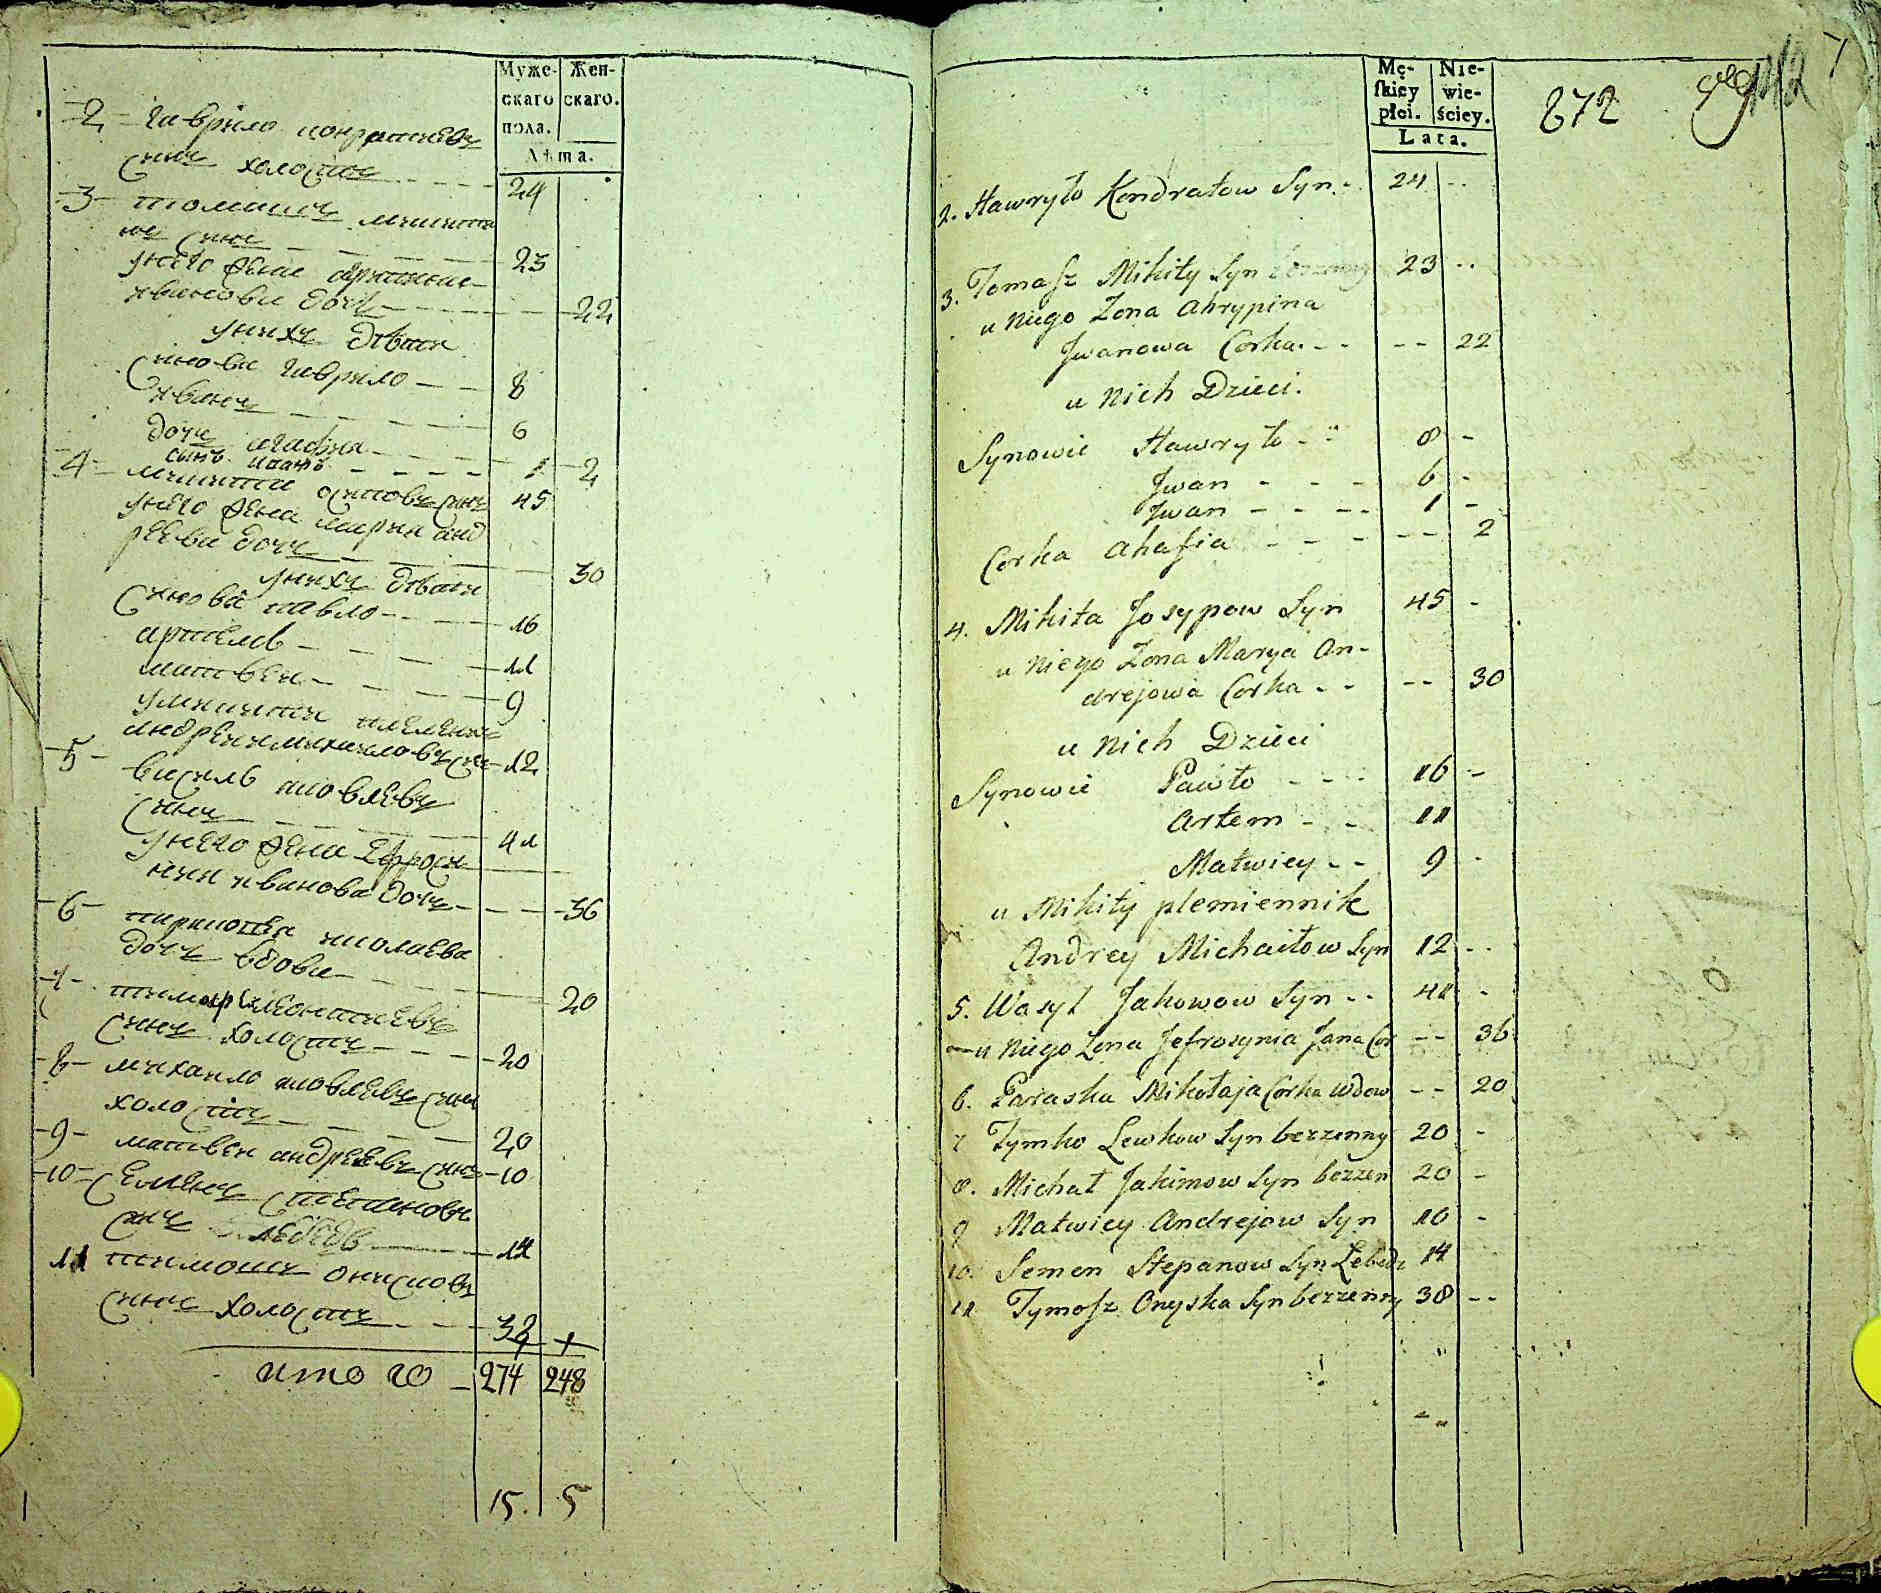 Муже-
скаго
пола.
Жен-
скаго.
Лѣта.
-2- гаврило кондратиевъ
синъ холостъ - - - 24
-3- томашъ микити
нъ синъ - - - 23
унего жена агрипина
иванова дочъ - - - 22
унихъ дѣти
синове гаврило - - 8
иванъ - - - 6
дочъ агафия - - - 2
сынъ иванъ - - - 1
-4- микита осиповъ синъ 45
унего жена мария анд
реева дочъ - - - 30
унихъ дѣти
синове павло - - - 16
артемъ - - - 11
матвеи - - - 9
умикити племеникъ
андреи михаиловъ син 12
-5- василь яковлевъ
синъ - - - 41
унего жена ефроси
ния иванова дочъ - - - 36
-6- параскевия николаева
дочъ вдова - - - 20
-7- тимофеи леонтиевъ
синъ холостъ - - - 20
-8- михаило яковлевъ синъ
холостъ - - - 20
-9- матвеи андреевъ синъ - 10
-10- семенъ степановъ
синъ лебедь - - - 14
11 тимошъ онисковъ
синъ холостъ - - - 38
итого - 274 248
15. 5
Mę-
skiey
płci.
Nie-
wie-
ściey.
Lata.
672
2. Hawryło Kondratow Syn - 24 - -
3. Tomasz Mikity Syn bezzenny 23 - -
u niego Zona Ahrypina
Jwanowa Corka - - - - 22
u nich Dzieci.
Synowie Hawryło - - 8 -
Jwan - - - 6 -
Jwan - - - - 1 -
Corka Ahafia - - - - - 2
4. Mikita Josypow Syn 45 -
u niego Zona Marya An-
drejowa Corka - - - - 30
u nich Dzieci
Synowie Pawło - - - 16 -
Artem - - 11
Matwiey - - 9 -
u Mikity plemiennik
Andrey Michaiłow Syn 12 - -
5. Wasyl Jakowow Syn - - 41 -
u niego Zona Jefrosynia Jana Cor - - 36
6. Paraska Mikołaja Corka Wdow - - 20
7 Tymko Lewkow Syn bezzenny 20 -
8. Michał Jakimow Syn bezzen 20 -
9 Matwiey Andrejow Syn 10 -
10. Semen Stepanow Syn Lebedz 14
11 Tymosz Onyska Syn bezzenny 38 - -